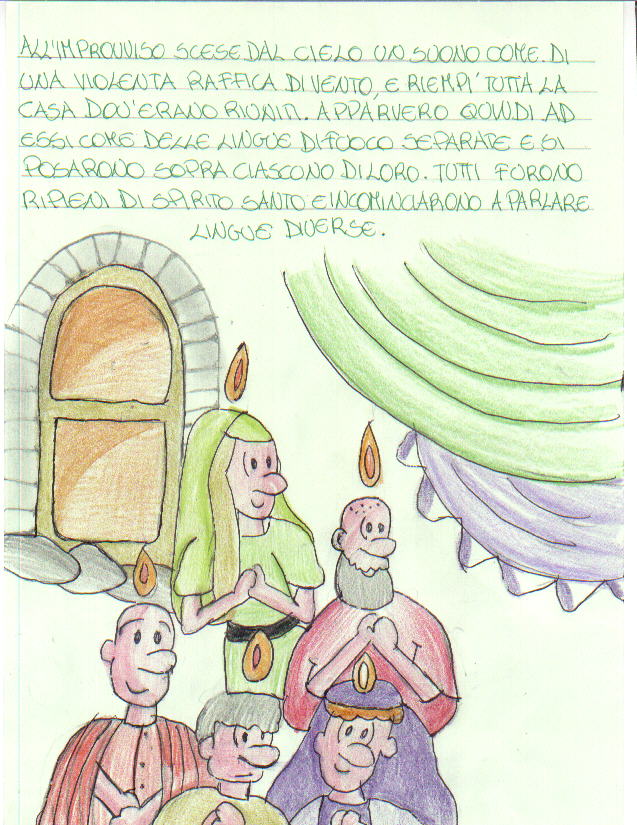 ALL'IMPROVVISO SCESE DAL CIELO UN SUONO COME DI
UNA VIOLENTA RAFFICA DI VENTO, E RIEMPI' TUTTA LA
CASA DOV'ERANO RIUNITI. APPARVERO QUINDI AD
ESSI COME DELLE LINGUE DI FUOCO SEPARATE E SI
POSARONO SOPRA CIASCONO DI LORO. TUTTI FURONO
RIPIENI DI SPIRITO SANTO E INCOMINCIARONO A PARLARE
LINGUE DIVERSE.